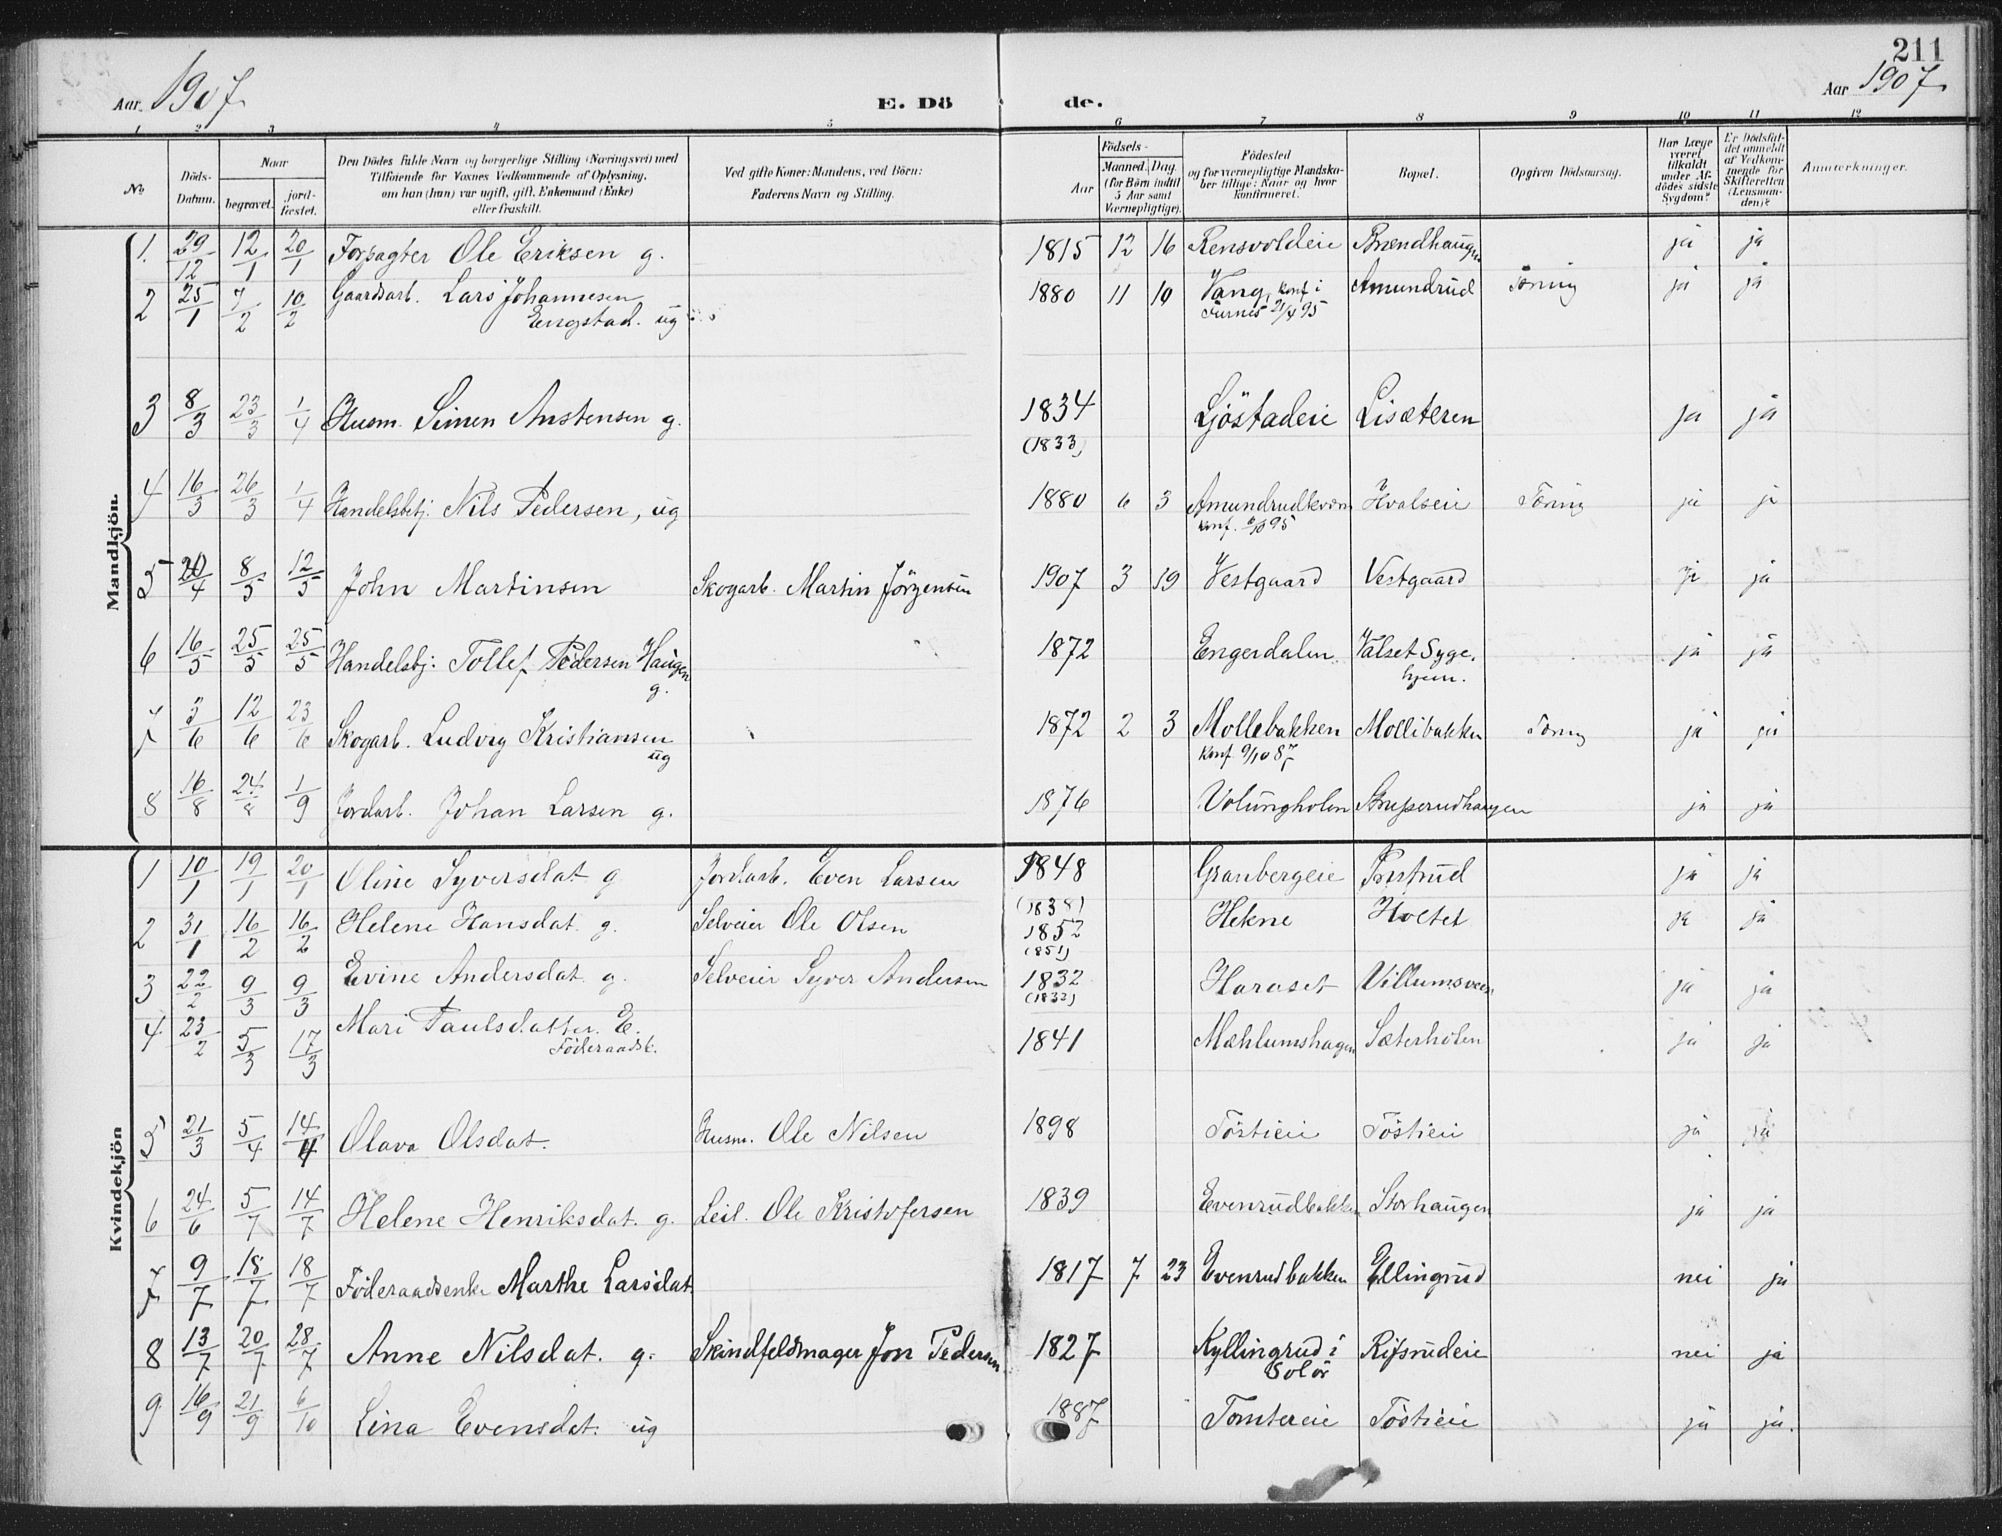 211
Aar 1907. E. Dö de. Aar 1907.
1 2 3 4 5 6 7 8 9 10 11 12
No Döds-Datum. Naar begravet. jord-fæstet. Den Dödes fulde Navn og borgerlige Stilling (Næringsvei) med Tilföiende for Voxnes Vedkommende af Oplysning, om han (hun) var ugift, gift, Enkemand (Enke) eller fraskilt. Ved gifte Koner: Mandens, ved Börn: Faderens Navn og Stilling. Födsels- Aar Maaned. Dag (for Börn indtil 5 Aar samt Værnepligtige). Födested og for værnepligtige Mandskaber tillige: Naar og hvor konfirmeret. Bopæl. Opgiven Dödsaarsag. Har Læge været tilkaldt under Afdödes sidste Sygdom? Er Dödsfaldet anmeldt af Vedkommende for Skifteretten (Lensmanden)? Anmærkninger.
Mandkjön.
1. 29/12 12/1 20/1 Forpagter Ole Eriksen g. 1815 12 16 Rensvoldeie Brændhaugen ja ja
2 25/1 7/2 10/2 Gaardsarb. Lars Johannesen 1880 11 10 Vang, konf i Amundrud Tæring ja ja
Engstad. ug Furnes 21/4 95
3 8/3 23/3 1/4 Husm. Simen Anstensen g. 1834 Ljöstadeie Lisæteren ja ja
(1833)
4 16/3 26/3 1/4 Handelsbetj. Nils Pedersen, ug 1880 6 3 Amundrudkvern Hvalseie Tæring ja ja
konf. 6/10 95
5 20/4 8/5 12/5 John Martinsen Skogarb. Martin Jörgensen 1907 3 19 Vestgaard Vestgaard ja ja
6 16/5 25/5 25/5 Handelsbj. Tollef Pedersen Haugen 1872 Engerdalen Valset Syge- ja ja
g. hjem.
7 3/6 12/6 23/6 Skogarb. Ludvig Kristiansen 1872 2 3 Mollebakken Mollibakken Tæring ja ja
ug konf 9/10 87
8 16/8 24/8 1/9 Jordarb. Johan Larsen g. 1876 Volungholen ja ja
Kvindekjön
1 10/1 19/1 20/1 Oline Syversdat g Jordarb. Even Larsen 1848 Granbergeie ja ja
(1838)
2 31/1 16/2 16/2 Helene Hansdat. g. Selveier Ole Olsen 1852 Hekne Holtet ja ja
(1851)
3 22/2 9/3 9/3 Evine Andersdat g. Selveier Syver Andersen 1832 Haraset Villumsveen ja ja
(1832)
4 23/2 5/3 17/3 Mari Paulsdatter E. 1841 Mæhlumshagen Sæterholen ja ja
Föderaadsk.
5 21/3 5/4 14/4 Olava Olsdat. Husm. Ole Nilsen 1898 Töstieie Töstieie ja ja
6 24/6 5/7 14/7 Helene Henriksdat. g. Leil. Ole Kristofersen 1839 Evenrudbakken Storhaugen ja ja
7 9/7 18/7 18/7 Föderaadsenke Marthe Larsdat. 1817 7 23 Evenrudbakken Ellingrud nei ja
8 13/7 20/7 28/7 Anne Nilsdat. g. Skindfeldmager Jon Pedersen 1827 Kyllingrud i Rifsrudeie nei ja
Solör
9 16/9 21/9 6/10 Lina Evensdat. ug 1887 Tomtereie Töstieie ja ja.